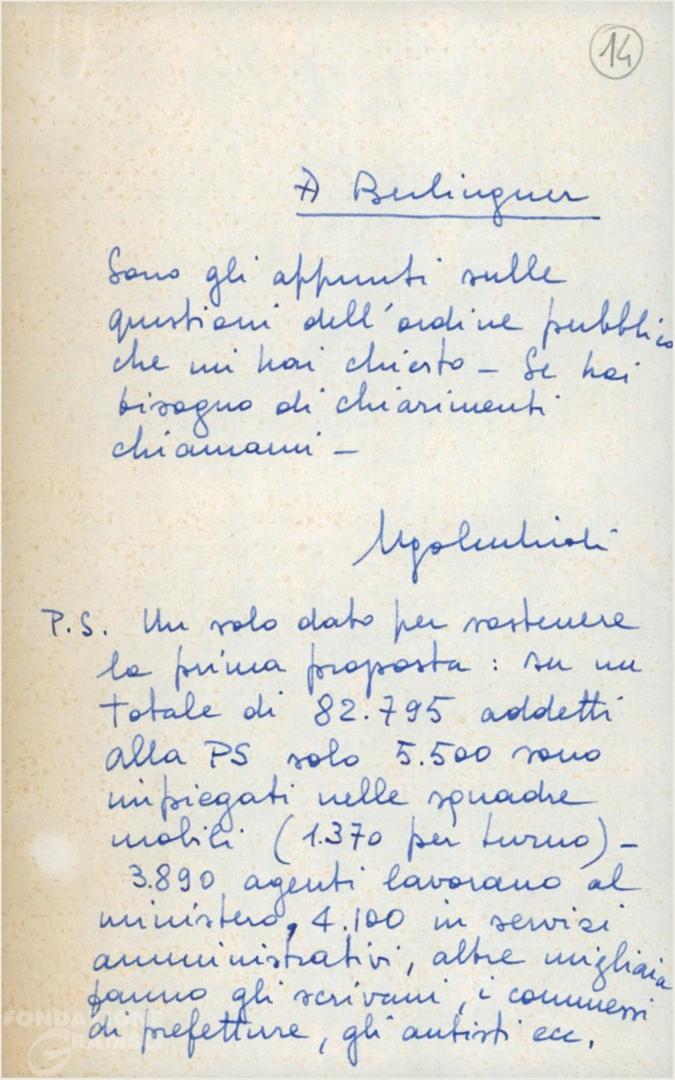 14
A Berlinguer
Sono gli appunti sulle
questioni dell'ordine pubblico
che mi hai chiesto – Se hai
bisogno di chiarimenti
chiamami –
Ugo Pecchioli
P.S. Un solo dato per sostenere
la prima proposta : su un
totale di 82.795 addetti
alla PS solo 5.500 sono
impiegati nelle squadre
mobili (1.370 per turno) –
3.890 agenti lavorano al
ministero, 4.100 in servizi
amministrativi, altre migliaia
fanno gli scrivani, i commessi
di prefetture, gli autisti ecc.
FONDAZIONE
GRAMSCI